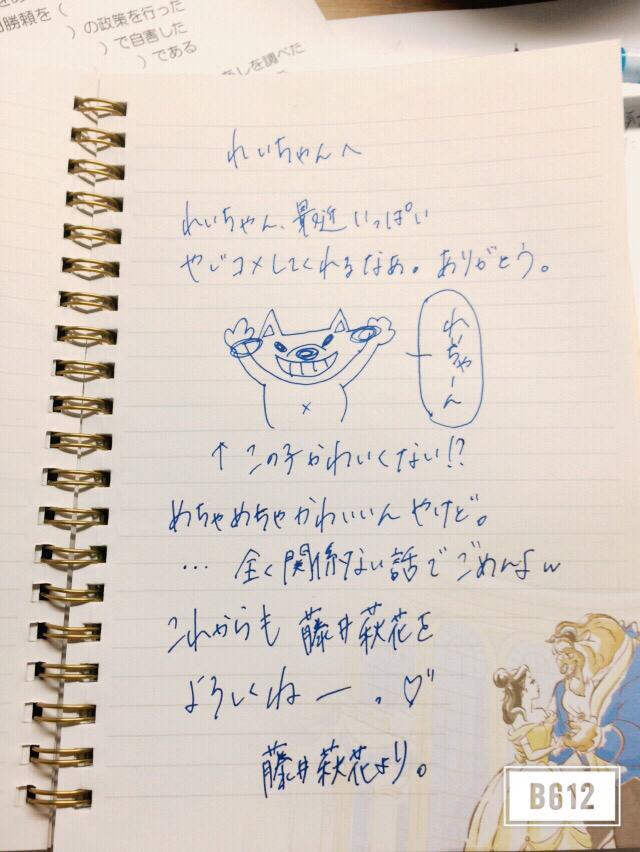 勝頼を(
)の政策を行った
)で自害した
)である
しを調べた
れいちゃんへ
れいちゃん、最近いっぱい
やじコメしてくれるなあ。ありがとう。
れいちゃーん
↑この子かわいくない!?
めちゃめちゃかわいいんやけど。
… 全く関係ない話でごめんよw
これからも藤井萩花を
よろしくねー。♡
藤井萩花より。
B612